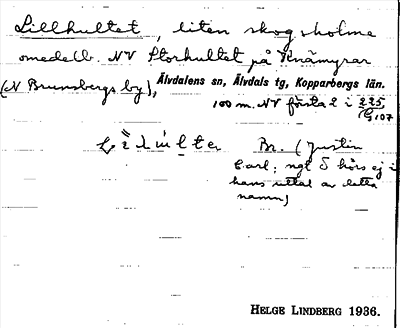 Lillhultet, liten skogsholme
omedelb. NV Storhultet på Knämyrar
(N Brunnsbergs by), Älvdalens sn, Älvdals tg, Kopparbergs län.
100 m. NV första 2 i 225
Br. (Justin
Carl; ngt ð hörs ej i
hans uttal av detta
namn)
HELGE LINDBERG 1936.